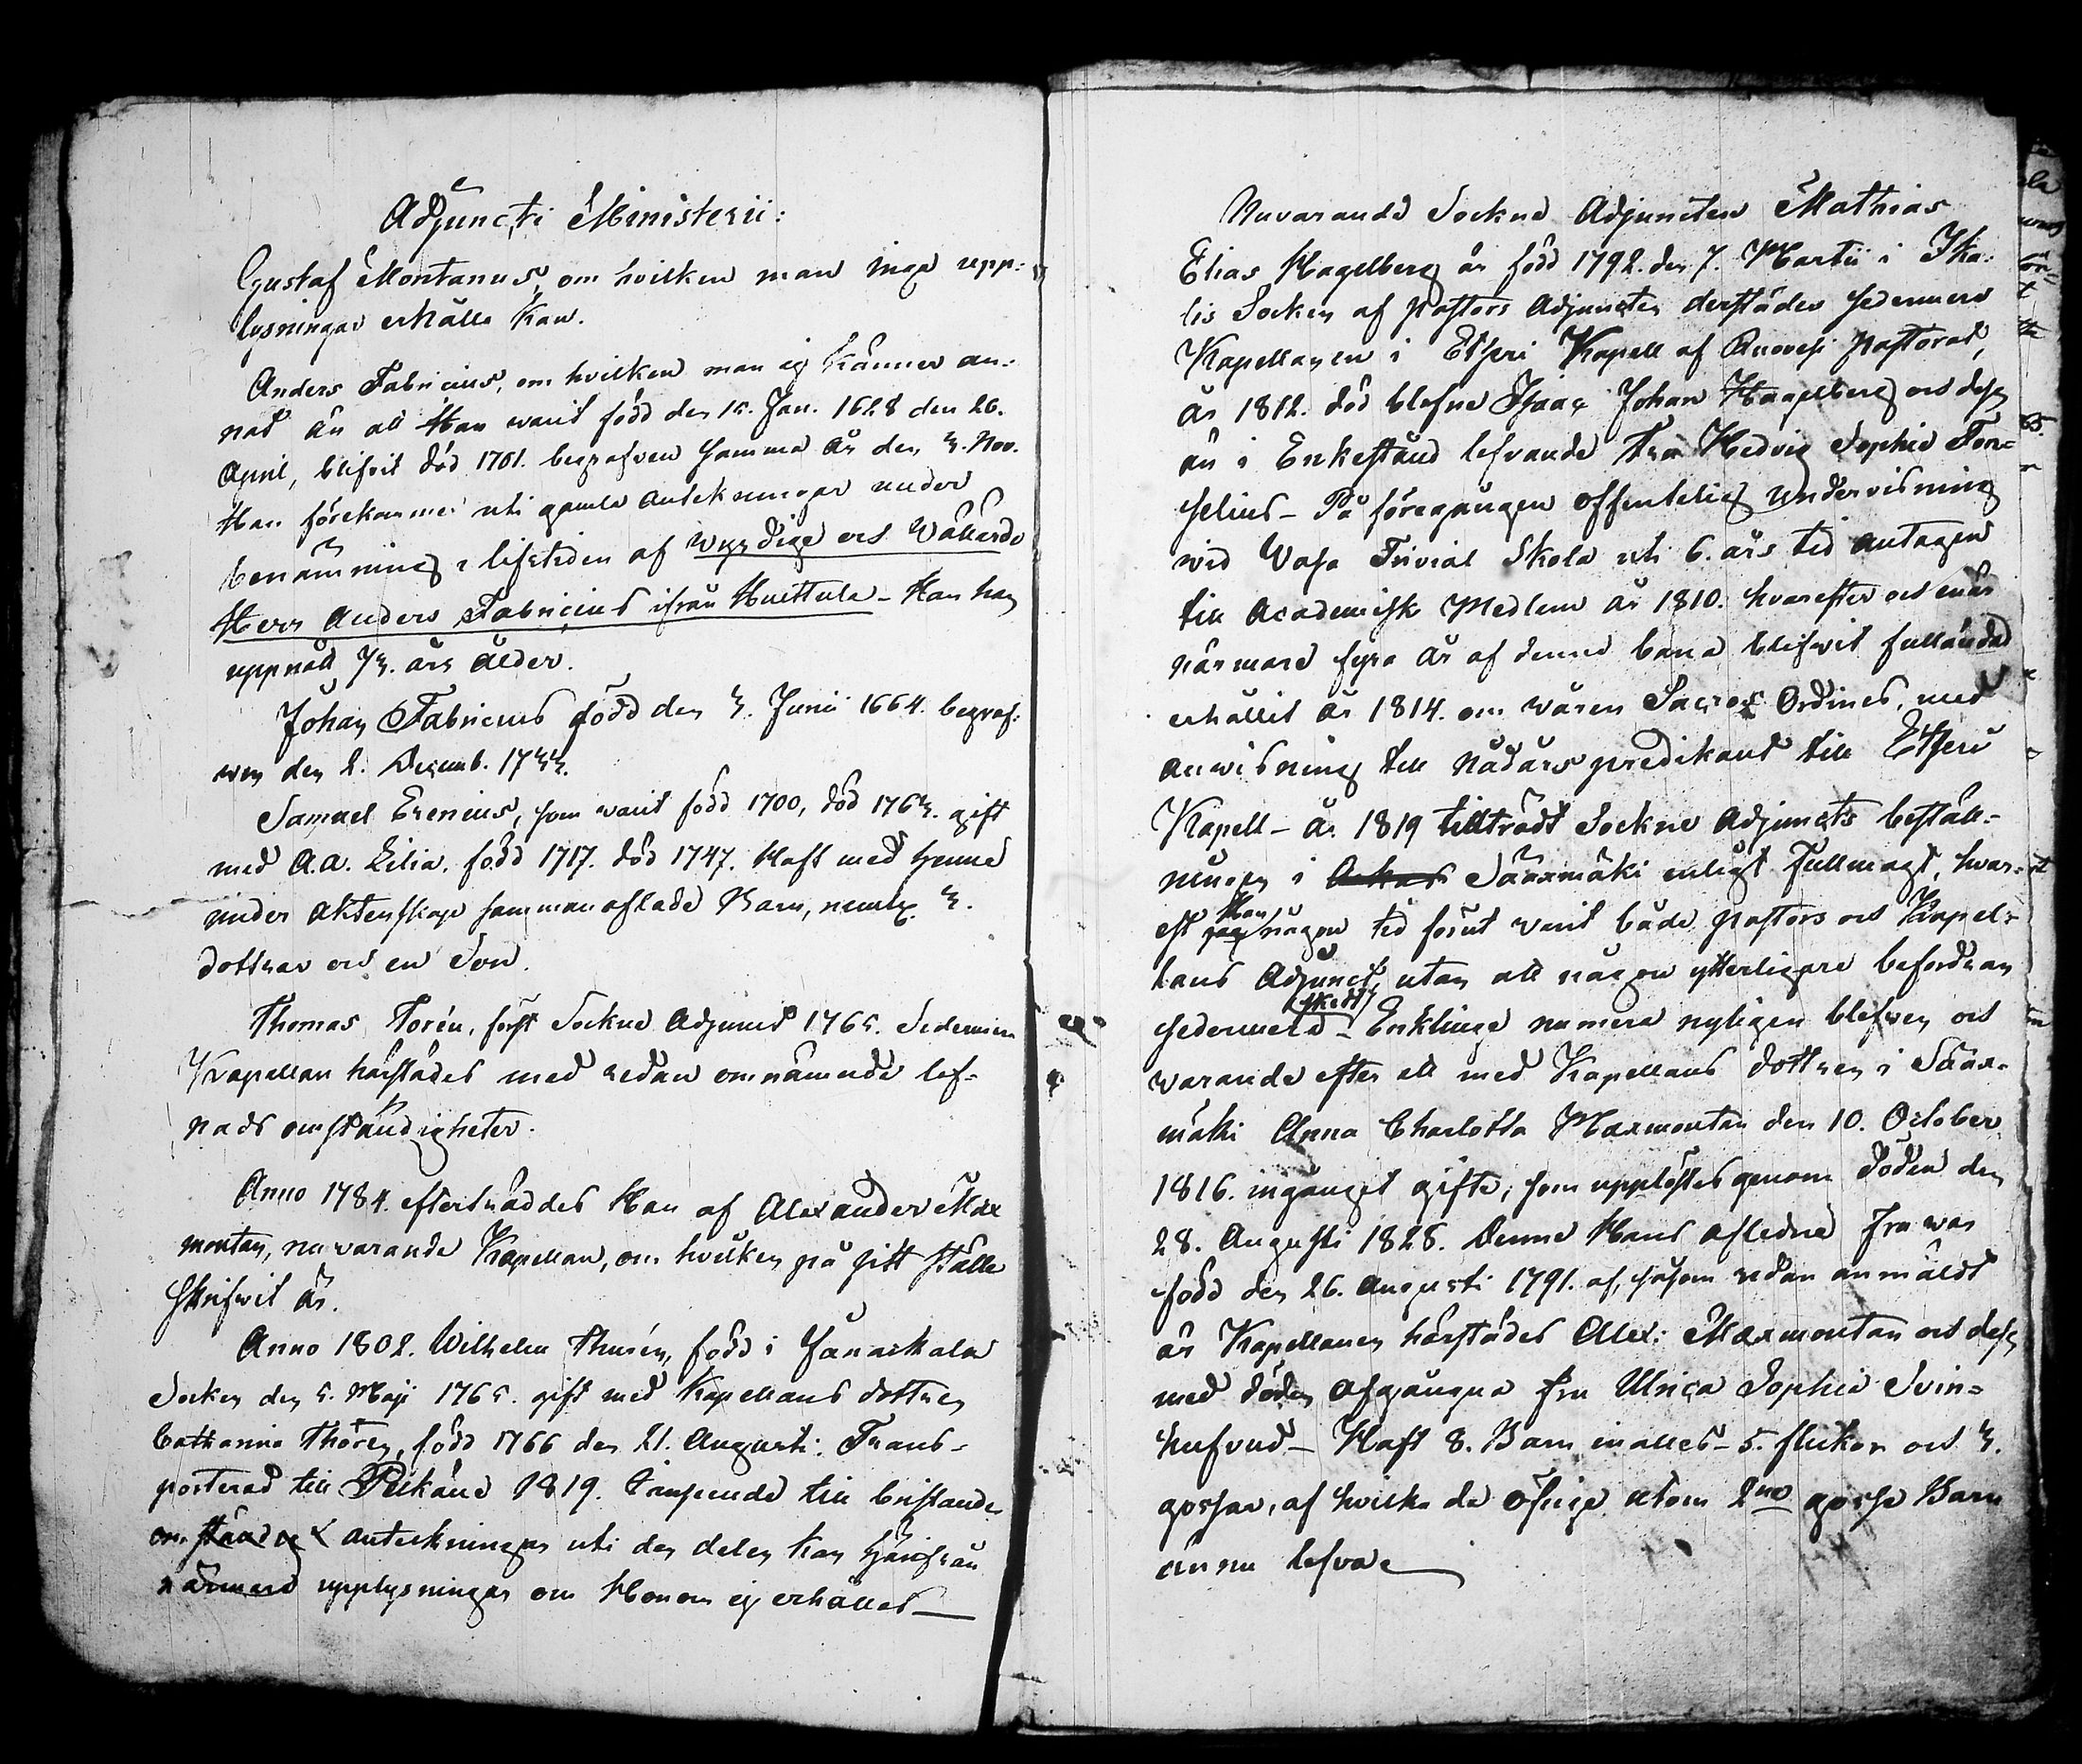 Adjuncti Ministerii:
Gustaf Montanus, om hvilken man inga upp-
lysningar erhålla kan.
Anders Fabricius, om hvilken man ej känner an-
nat än att Han warit född den 15. Jan. 1628 den 26.
April, blifvit död 1701. begrafven samma år den 3. Nov.
Han förekommer uti gamla antekningar under
benämning i lifstiden af Wyrdige och Wällärde
Herr Anders Fabricius ifrån Huittula – Han har
uppnått 73. års ålder.
Johan Fabricius född den 3. Junii 1664. begraf-
wen den 2. Decemb. 1733.
Samuel Erenius, som warit född 1700, död 1763. gift
med A.A. Lilia. född 1717. död 1747. Haft med henne
under äktenskap sammanaflade Barn, neml. 3.
dottrar och en Son.
Thomas Torén, först Sockne Adjunct 1765. Sedermera
Kapellan härstädes med redan omnämnde lef-
nads omständigheter.
Anno 1784. efterträddes Han af Alexander Max
montan, nuvarande Kapellan, om hvilken på sitt ställe
skrifwit är.
Anno 1802. Wilhelm Thurén, född i Janakala
Socken den 5. Maji 1765. gift med Kapellans dottren
Catharina Thorén, född 1766 den 21. Augusti. Trans-
porterad till Pelkäne 1819. I anseende till bristande
anteckningar uti den delen kan härifrån
närmare upplysningar om Honom ej erhållas —
Nuvarande Sockne Adjuncten Mathias
Elias Hagelberg är född 1792. den 7. Martii i Ika-
lis Socken af Pastors Adjuncten derstädes sedermera
Kapellanen i Etseri Kapell af Ruovesi Pastorat,
år 1812. död blefne Isaac Johan Hagelberg och dess
än i Enkestånd lefvande Fru Hedvig Sophia For-
selius – På föregången offentelig undervisning
wid Vasa Trivial Skola uti 6. års tid antagen
till Academisk Medlem år 1810. hvarefter och enär
närmare fyra år af denne bana blifwit fulländad
erhållit år 1814. om wåren Sacros Ordines, med
anwisning till nådårs predikant till Etseri
Kapell – år 1819 tillträdt Sockne Adjuncts beställ-
ningen i Akas Sääxmäki enligt Fullmagt, hwar-
est Han någon tid förut warit både Pastors och Kapel-
lans Adjunct, utan att någon ytterligare befordran
skedt
sedermera – Enklinge numera nyligen blefven och
warande efter ett med Kapellans dottren i Sääx-
mäki Anna Charlotta Maxmontan den 10. October
1816. ingånget gifte, som upplöstes genom döden den
28. Augusti 1828. Denne Hans aflidne Fru war
född den 26. Augusti 1791. af, såsom redan anmäldt
är Kapellanen härstädes Alex: Maxmontan och dess
med döden afgångna Fru Ulrica Sophia Svin-
hufvud – Haft 8. Barn inalles – 5. flickor och 3.
gossar, af hvilka de öfrige utom 2ne gosse Barn
ännu lefva —